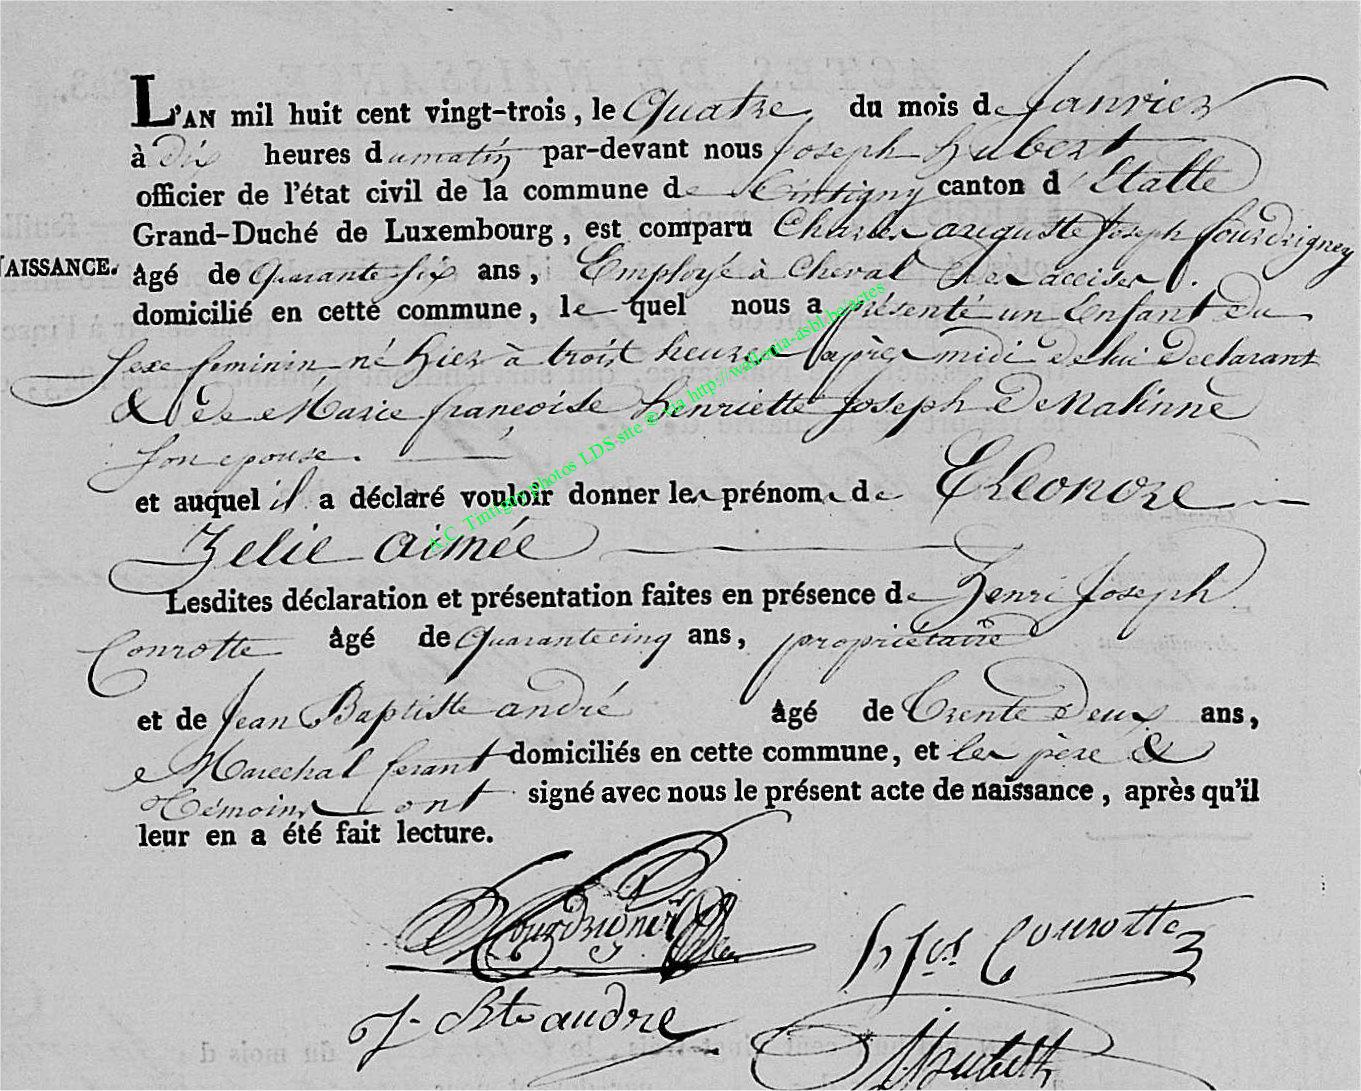 L'AN mil huit cent vingt-trois, le Quatre du mois de Janvier
à dix heures du matin par-devant nous Joseph Hubert
officier de l'état civil de la commune de Tintigny canton d'Etalle
Grand-Duché de Luxembourg, est comparu Charles auguste Joseph fourdrigney
NAISSANCE.
âgé de Quarante six ans, Employé à cheval des accises
domicilié en cette commune, le quel nous a présenté un Enfant du
Sexe feminin né hier à trois heures après midi de lui declarant
& de Marie françoise henriette Joseph de Malinne
Son epouse.
et auquel il a déclaré vouloir donner les prénoms de Eleonore
Zelie aimée
Lesdites déclaration et présentation faites en présence de Henri Joseph
Conrotte âgé de Quarante cinq ans, propriétaire
et de Jean Baptiste andré âgé de Trente deux ans,
Marechal ferant domiciliés en cette commune, et les père &
Témoins ont signé avec nous le présent acte de naissance, après qu'il
leur en a été fait lecture.
h Jos Conrotte
J. Bte andre
A.C. Tintigny Photos LDS site © via http://wallonia-asbl.be/actes